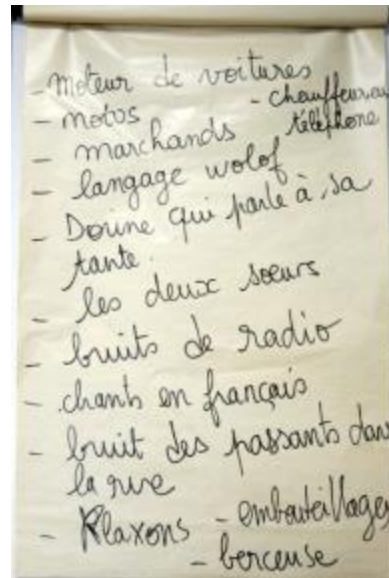 - Moteur de voitures
- motos
- chauffeur au
téléphone
- marchands
- langage wolof
- Dorine qui parle à sa
tante.
- les deux soeurs
- bruits de radio
- chants en français
- bruit des passants dans
la rue
- Klaxons - embouteillages
- berceuse